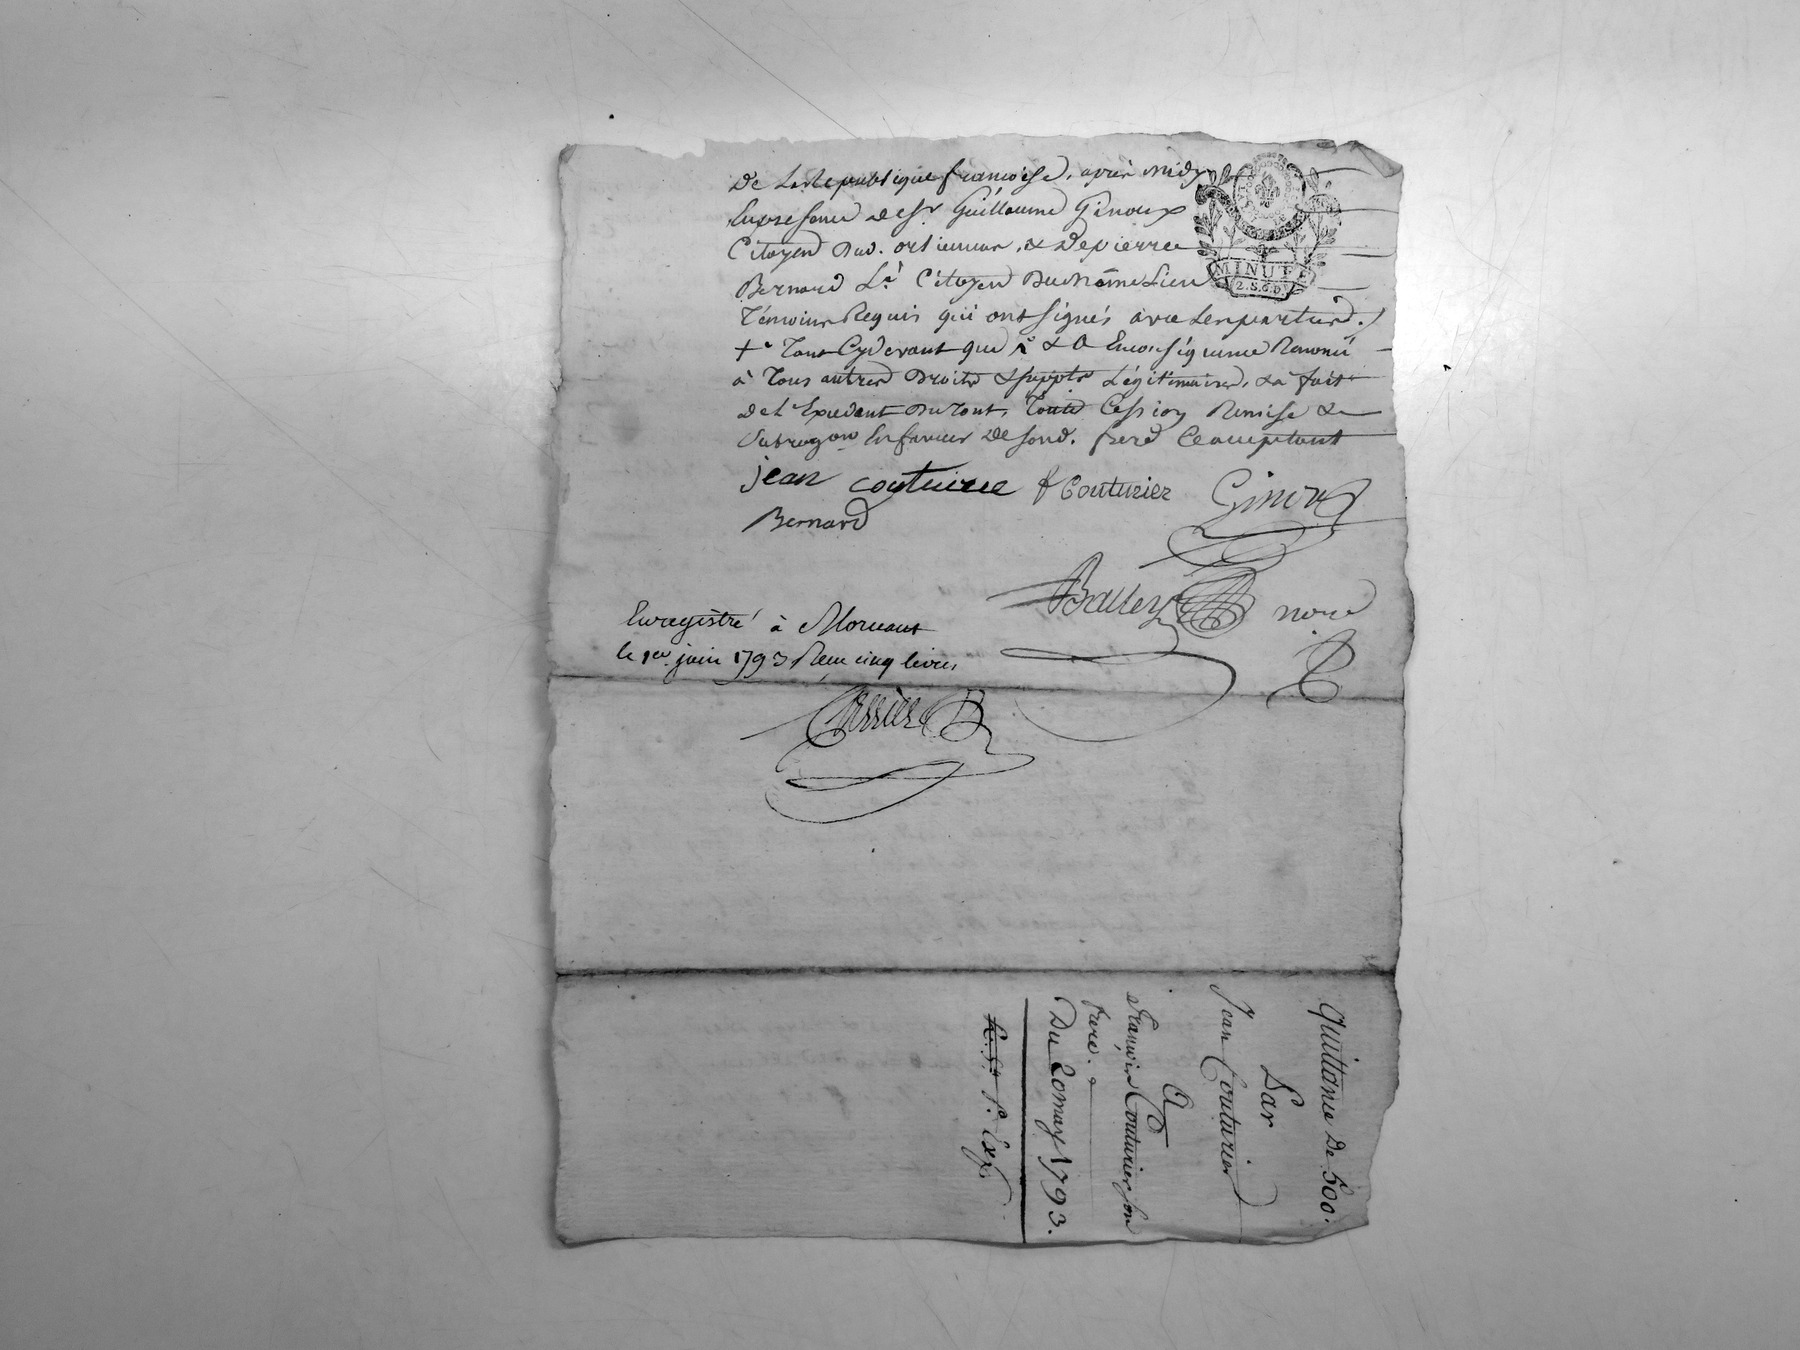 De la Republique francoise, après midy
En presence de sr Guillaume Ginoux
Citoyen Dud. & de pierre
Bernard Citoyen Du même Lieu
Témoins Requis qui ont signés avec les parties.
+ Tout Cydevant que & a En conséquence Renoncé
à Tous autres Droits & supplts Légitimaires, & a fait
de l'Excedant Du Tout, Toute Cession Remise &
Subrogaon En faveur De sond. frere Ceacceptant
jean couturier f Couturier Ginoux
Bernard
Balley nore
Enregistré à Mornant
le 1er juin 1793 Recu cinq livres
MINUTE
2.S.6.D
Quittance De 500.
Par
Jean Couturier
A
françois Couturier son
frere.
Du 20 may 1793.
f. Exp.